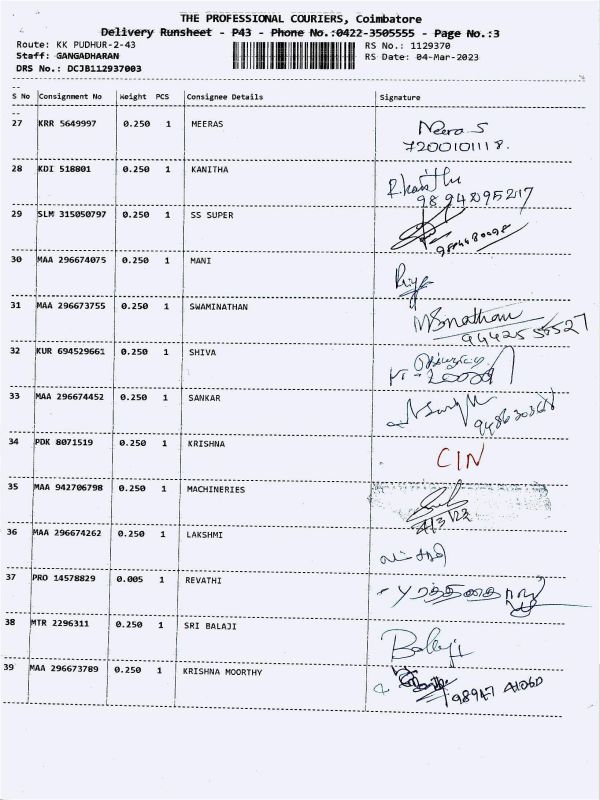 THE PROFESSIONAL COURIERS, Coimbatore
Delivery Runsheet - P43 - Phone No.:0422-3505555 - Page No.:3
Route: KK PUDHUR-2-43 RS No.: 1129370
Staff: GANGADHARAN RS Date: 04-Mar-2023
DRS No.: DCJB112937003
S No Consignment No Weight PCS Consignee Details Signature
27 KRR 5649997 0.250 1 MEERAS Neera S
7200101118.
28 KDI 518801 0.250 1 KANITHA
9894095217
29 SLM 315050797 0.250 1 SS SUPER
30 MAA 296674075 0.250 1 MANI
31 MAA 296673755 0.250 1 SWAMINATHAN
32 KUR 694529661 0.250 1 SHIVA
33 MAA 296674452 0.250 1 SANKAR
34 PDK 8071519 0.250 1 KRISHNA CIN
35 MAA 942706798 0.250 1 MACHINERIES
4/3/23
36 MAA 296674262 0.250 1 LAKSHMI
37 PRO 14578829 0.005 1 REVATHI
38 MTR 2296311 0.250 1 SRI BALAJI Balaji
39 MAA 296673789 0.250 1 KRISHNA MOORTHY